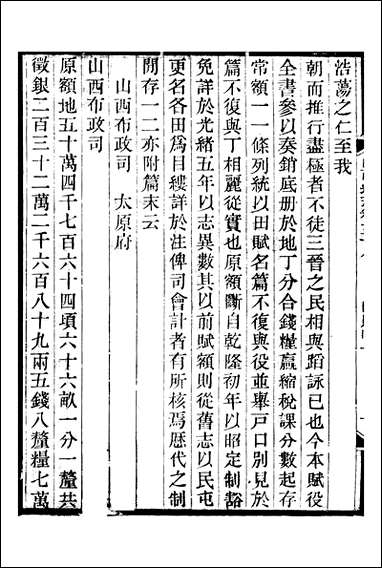 浩蕩之仁至我
朝而推行盡極者不徒三晉之民相與蹈詠已也今本賦役
全書參以奏銷底册於地丁分合錢糧贏縮稅課分數起存
常額一一條列統以田賦名篇不復與役並舉戸口別見於
篇不復與丁相麗從實也原額斷自乾隆初年以昭定制豁
免詳於光緒五年以志異數其以前賦額則從舊志以民屯
更名各田為目縷詳於注俾司會計者有所核焉歷代之制
閒存一二亦附篇末云
山西布政司　太原府
山西布政司
原額地五十萬四千七百六十四頃六十六畝一分一釐共
徵銀二百三十二萬二千六百八十九兩五錢八釐糧七萬